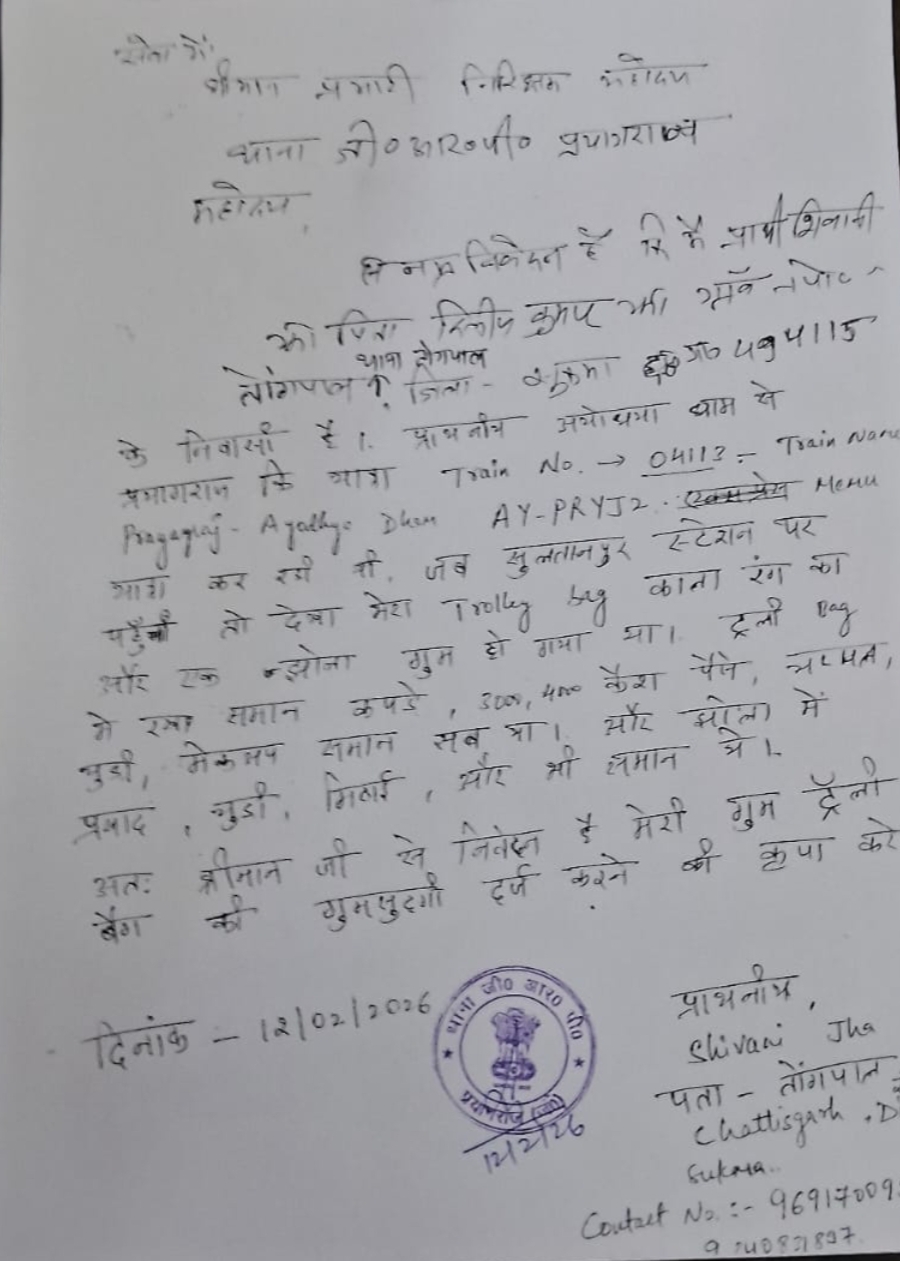 सेवा में,
श्रीमान प्रभारी निरिक्षक महोदय
थाना जी०आर०पी० प्रयागराज
महोदय,
निवेदन है कि मै प्रार्थी शिवानी
झा पिता दिलीप कुमार झा
थाना तोंगपाल
तोंगपाल जिला - सुकमा 494115
के निवासी है। प्राथनीय अयोध्या धाम से
प्रयागराज कि यात्रा Train No. → 04113 - Train Name
Prayagraj - Ayodhya Dham AY-PRYJ2. Memu
यात्रा कर रही थी, जब सुलतानपुर स्टेशन पर
पहुँची तो देखा मेरा Trolley bag काला रंग का
और एक झोला गुम हो गया था। ट्रली Bag
मे रखा समान कपडे, 3000, 4000 कैश पैसे,
चुडी, मेकअप समान सब था। और झोला में
प्रसाद, चुडी, मिठाई, और भी समान थे।
अतः श्रीमान जी से निवेदन है मेरी गुम ट्रॅली
बैग की गुमसुदगी दर्ज करने की कृपा करे
दिनांक - 12/02/2026
थाना जी० आर० पी०
प्रयागराज
12/2/26
प्राथनीय,
Shivani Jha
पता - तोंगपाल
Chattisgarh, D
Sukma..
Contact No. :- 96917009